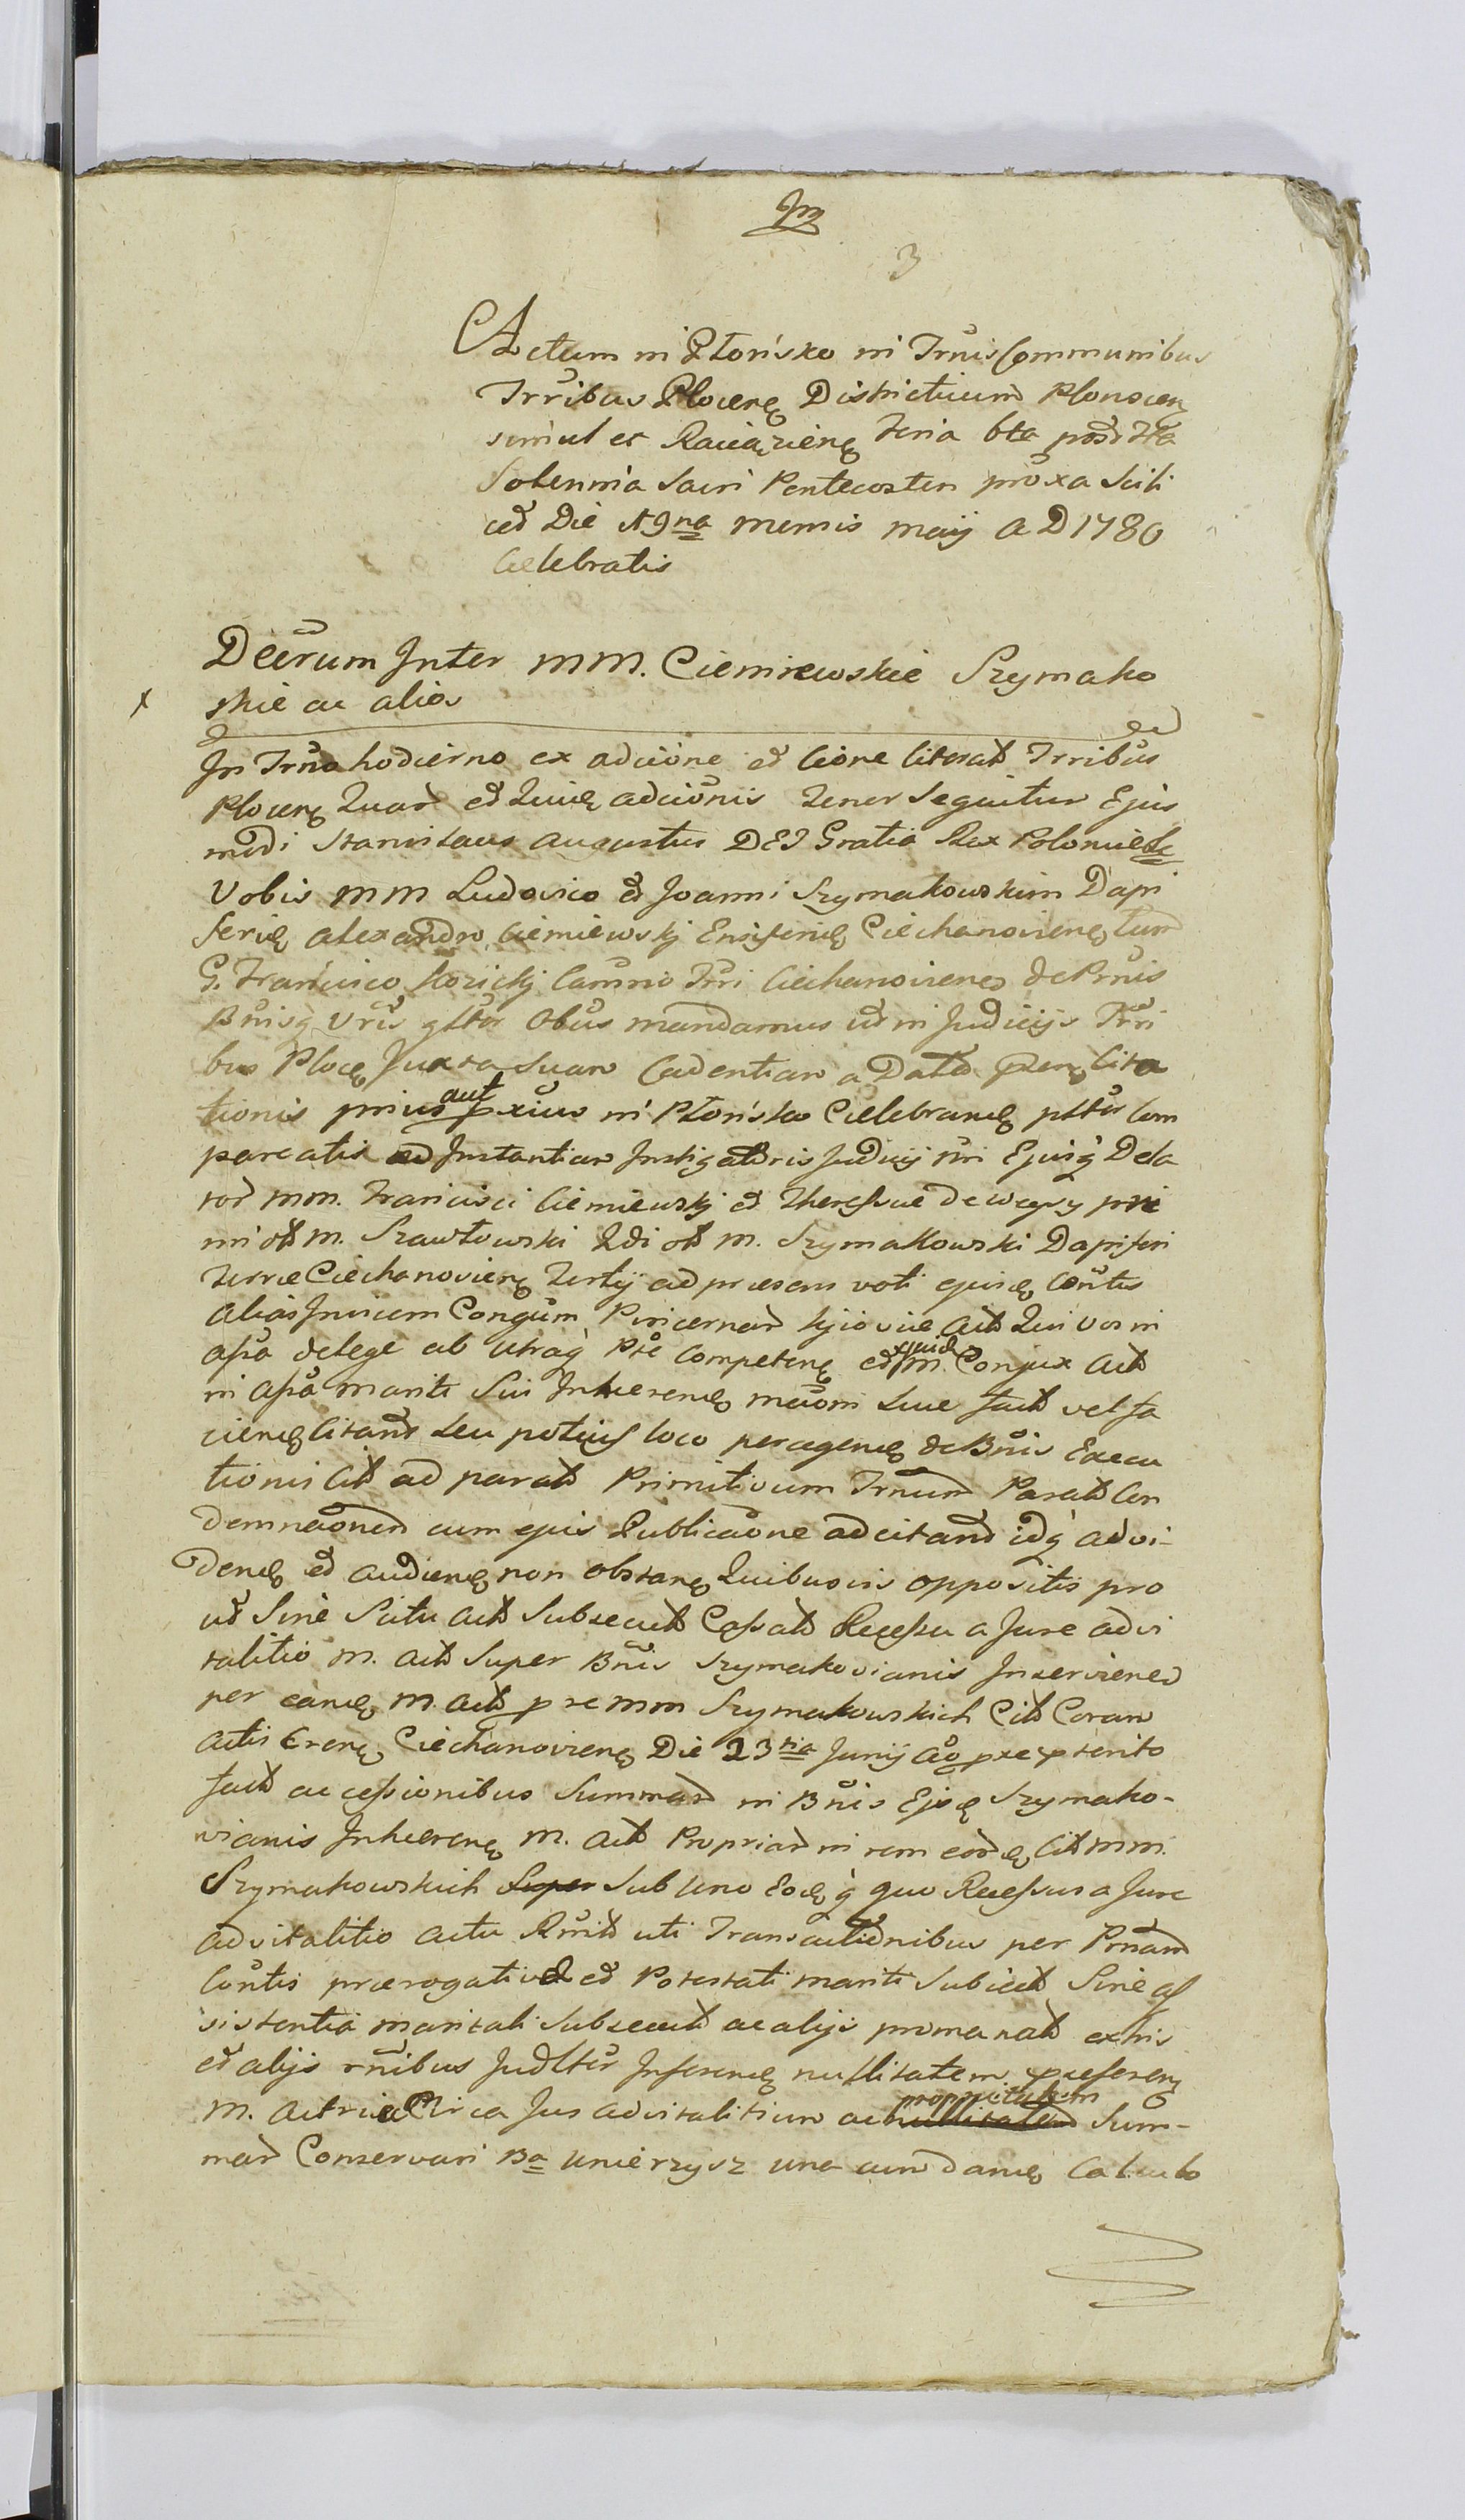 Jm
3
Actum in Płońsko in Trnis Communibus
Trribus Plocen Districtuum Plonscen
simul et Raciązien Feria 6ta post Fta
Solennia Sacri Pentecosten proxa Scili
cet Die 19na mensis maij A D 1780
Celebratis
Decrum Inter MM. Ciemniewskie Szymako
skie ac alios
x
In Trno hodierno ex adcione et Cione literali Trribus
Plocen Quar et Quie adcionis Tenor Seguitur Ejus
modi Stanislaus Augustus DEI Gratia Rex Poloniæ &c
Vobis MM Ludovico et Joanni Szymakowskim Dapi
feriis Alexandro Ciemiewskj Ensiferie Ciechanovien tum
G. Francisco Kozickj Camrio Trri Ciechanovien de Prnis
Bnisq Vris gltr Obus mandamus ut in Judicijs Trri
bus Ploce Juxta Suam Cadentiam a Dato pren Cita
tionis prius aut pxius in Płońsko Celebrand pltr Com
pareatis ad Instantiam Instigatoris Judicij nri Ejusq Dela
tor MM. Francisci Ciemiewskj et Theressiae de Węży pri
mi olt M. Szawłowski 2di olt M. Szymakowski Dapiferi
Terræ Ciechanovien Tertij ad præsens voti ejusd Contis
alias Invicem Congum Pincernar Kijoviæ Act Qui vos in
assa delege ab utraq Pte Competen et ejusd M. Conjux Act
in assa mariti Sui Inhæren maoni Suæ fact vel fa
ciend Citand Seu potius loco peragend de Bnis Execu
tionis Cit ad parat Primitivum Trnum Parat Con
demnaonem cum ejus Publicaone adcitand idq ad vi-
dend et audiend non obstan Quibusvis oppositis pro
ut Sine Scitu Act Subsecut Cassat Recessu a Jure advi
talitio M. Act Super Bnis Szymakovianis Inservien
per eand M. Act pre MM Szymakowskich Cit Coram
Actis Cren Ciechanovien Die 23tia Junij Ao præterito
fact ac cessionibus Summar in Bnis Ejsd Szymako-
vianis Inhæren M. Act Propriar in rem eord Cit MM.
Szymakowskich Super Sub Uno Eodq quo Recessus a Jure
advitalitio actu Rmit uti Transactionibus per Prnam
Contis prærogativæ et Potestati mariti Subiect Sine as
sistentia maritali Subsecut ac alijs promanat ex his
et alijs rnibus Judltr Inferend nullitatem præferen
M. Actricæ Circa Jus advitalitium ac nullitatem proprietatem Sum-
mar Conservari Ba Unierzysz una cum dand Calculo